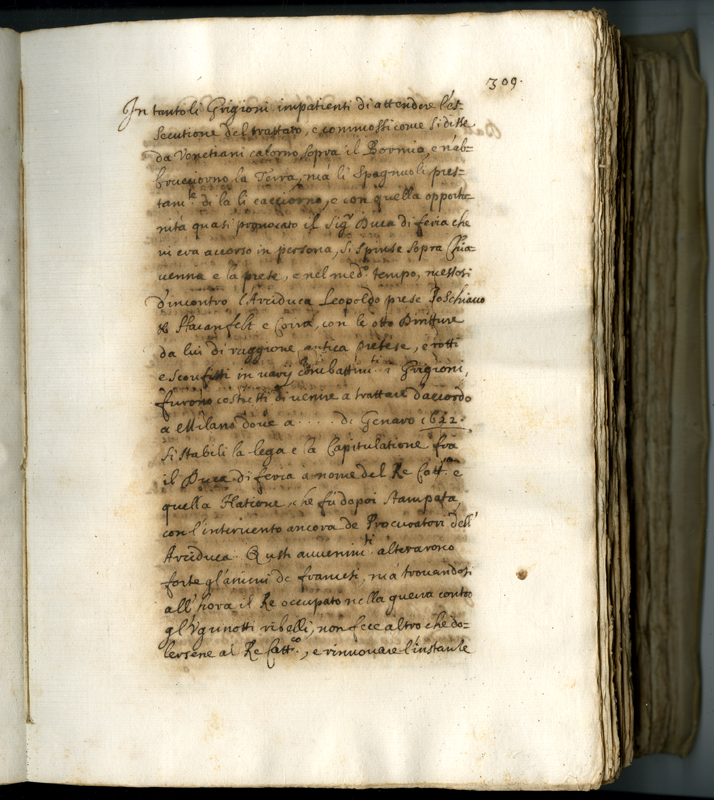 309.
In tanto li Grigioni impatienti di attendere l'es-
secutione del trattato, e commossi come si disse
da Venetiani calorno sopra il Bormio e n'ab-
bruciorno la Terra, mà li Spagnuoli pres-
tam.te di la li cacciorno, e con quella opportu-
nità quasi provocato il Sig.r Duca di feria che
vi era accorso in persona, si spinse sopra Chia-
uenna e la prese, e nel med.o tempo, mossosi
d'incontro l'Arciduca Leopoldo prese Poschiauo
Maianfelt e Coira, con le otto Diritture
da lui di raggione antica pretese, e rotti
e sconfitti in varij combattim.ti i Grigioni,
furono costretti di venire a trattare d'accordo
a Milano doue a . . . . di Genaro 1622.
si stabilì la lega e la Capitulatione fra
il Duca di feria à nome del Re Catt.o e
quella Natione, che fù dopoi stampata,
con l'interuento ancora de Procuratori dell'
Arciduca. Questi auuenim.ti alterarono
forte gl'animi de francesi, mà trouandosi
all'hora il Re occupato nella guerra contro
gl'Vgunotti ribelli, non fece altro che do-
lersene al Re Catt.co, e rinnouare l'instanze